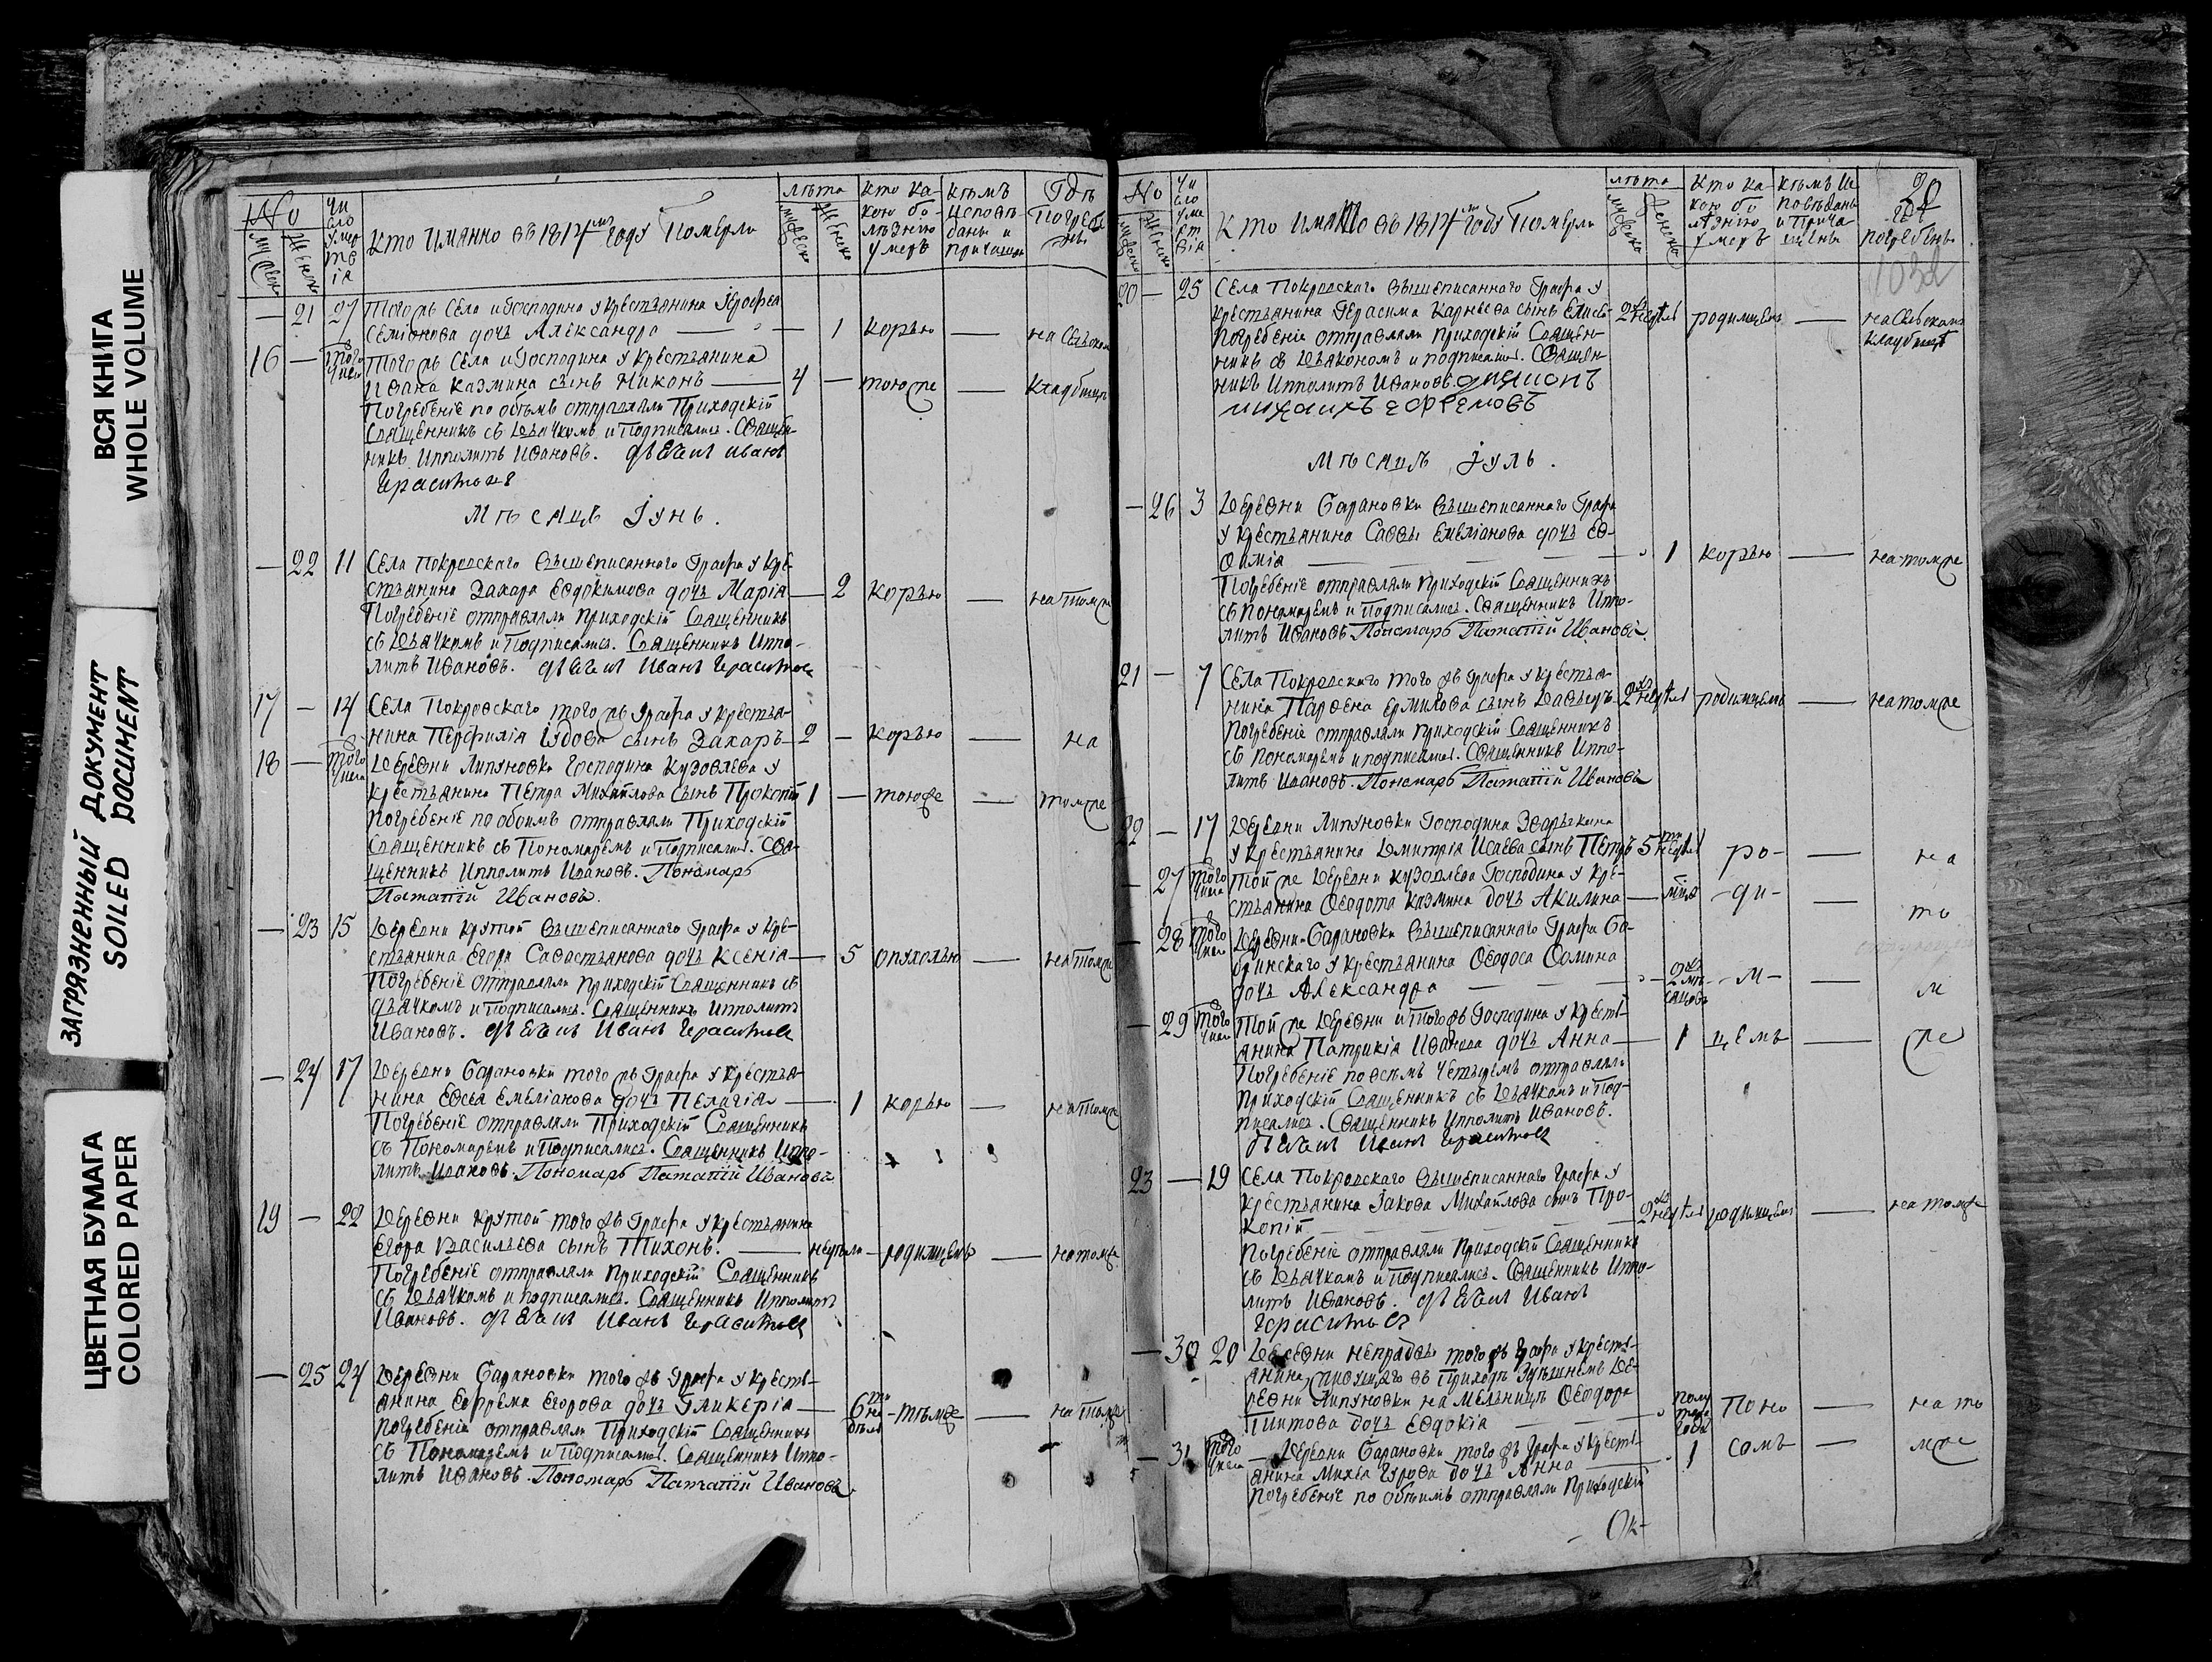 ВСЯ КНИГА
WHOLE VOLUME
ЗАГРЯЗНЕННЫЙ ДОКУМЕНТ
SOILED DOCUMENT
ЦВЕТНАЯ БУМАГА
COLORED PAPER
№
муск
женск
чи
сло
умер
тв
ія
Кто имянно въ 1817мъ году померли
лѣта
мужеск
женск
кто ка-
кою бо-
лѣзнію
умеръ
кѣмъ
исповѣ-
даны и
причащен
Гдѣ
погребе
ны
— 21 27 Тогожъ Села и Господина у крестьянина Іерофеа
Семіонова дочь Александра — 1 корью — на Сельском
16 — того числа Тогожъ Села и Господина у крестьянина
Ивана Казмина сынъ Никонъ — 4 — тоюже — кладбищѣ
Погребеніе по обѣмъ отправляли Приходскій
Священникъ съ Дьячкомъ и Подписались. Священ-
никъ Ипполитъ Ивановъ. дьечик иванъ
Герасимов
Мѣсяцъ Іунь.
— 22 11 Села Покровскаго вышеписаннаго Графа у кре-
стьянина Захара Евдокимова дочь Марія — 2 корью — на томже
Погребеніе отправляли Приходскій Священникъ
съ Дьячкомъ и Подписались. Священникъ Иппо-
литъ Ивановъ. дьечик Иванъ Герасимов
17 — 14 Села Покровскаго тогожъ Графа у крестья-
нина Перфилія Іудова сынъ Захаръ 2 — корью — на
18 — того числа Деревни Липуновки Господина Кузовлева у
крестьянина Петра Михайлова сынъ Прокопій 1 — тоюже — томже
Погребеніе по обоимъ отправляли Приходскій
Священникъ съ Пономаремъ и Подписались. Свя-
щенникъ Ипполитъ Ивановъ. Пономарь
Патапій Ивановъ.
— 23 15 Деревни Крутой вышеписаннаго Графа у кре-
стьянина Егора Савастьянова дочь Ксенія — 5 опухолью — на томже
Погребеніе отправляли приходскій Священникъ съ
дьячкомъ и подписались. Священникъ Ипполитъ
Ивановъ. дьечик Иванъ Герасимов
— 24 17 Деревни Барановки тогожъ Графа у крестья-
нина Евсея Емеліанова дочь Пелагія — 1 корью — на томже
Погребеніе отправляли Приходскій Священникъ
съ Пономаремъ и Подписались. Священникъ Иппо-
литъ Ивановъ. Пономарь Патапій Ивановъ
19 — 22 Деревни Крутой тогожъ Графа у крестьянина
Егора Васильева сынъ Тихонъ. — недели — родимцемъ — на томже
Погребеніе отправляли приходскій Священникъ
съ Дьячкомъ и подписались. Священникъ Ипполитъ
Ивановъ. дьечик Иванъ Герасимов
— 25 24 Деревни Барановки тогожъ Графа у кресть-
янина Ефрема Егорова дочь Гликерія — 6ти не дѣль — тѣмже — на томже
Погребеніе отправляли Приходскій Священникъ
съ Пономаремъ и Подписались. Священникъ Иппо-
литъ Ивановъ. Пономарь Патапій Ивановъ.
№
мужеск
женск
чи
сло
уме
рт
вія
Кто имянно въ 1817мъ году померли
лѣта
мужеска
женска
Кто ка-
кою бо
лѣзнію
умеръ
кѣмъ ис
повѣданы
и прича
щены
гдѣ
погребены
20 — 25 Села Покровскаго вышеписаннаго Графа у
крестьянина Герасима Карнѣева сынъ Елисѣй 2хъ недѣль родимцемъ — на Сельскомъ
Погребеніе отправляли приходскій Священ- кладбищѣ
никъ съ Дьякономъ и подписались. Священ-
никъ Ипполитъ Ивановъ. дияконъ
михаилъ ефремовъ
Мѣсяцъ Іуль.
— 26 3 Деревни Барановки вышеписаннаго Графа
у крестьянина Саввы Емеліанова дочь Ев-
ѳимія — 1 корью — на томже
Погребеніе отправляли приходскій Священникъ
съ Пономаремъ и Подписались. Священникъ Иппо-
литъ Ивановъ. Пономарь Патапій Ивановъ.
21 — 7 Села Покровскаго тогожъ Графа у крестья-
нина Парѳена Ермилова сынъ Давыдъ 2хъ недѣль родимцемъ — на томже
Погребеніе отправляли приходскій Священникъ
съ Пономаремъ и подписались. Священникъ Иппо-
литъ Ивановъ. Пономарь Патапій Ивановъ
22 — 17 Деревни Липуновки Господина Зварыкина
у крестьянина Дмитрія Исаева сынъ Петръ 5ти недѣль ро- — на
— 27 того числа Тойже Деревни Кузовлева Господина у кре-
стьянина Ѳеодота Казмина дочь Акилина — — ди- — то
— 28 того числа Деревни Барановки вышеписаннаго Графа Бо-
бринскаго у крестьянина Ѳеодоса Ѳомина
дочь Александра — 2хъ мѣ-сяцовъ — м — — м
— 29 того числа Тойже Деревни и тогожъ Господина у кресть-
янина Патрикія Иванова дочь Анна — 1 цемъ — же
Погребеніе по всѣмъ четыремъ отправляли
приходскій Священникъ съ Дьячкомъ и Под-
писались. Священникъ Ипполитъ Ивановъ.
дьечик Иванъ Герасимов
23 — 19 Села Покровскаго вышеписаннаго Графа у
крестьянина Іакова Михайлова сынъ Про-
копій — 2хъ недѣль родимцемъ — на томже
Погребеніе отправляли Приходскій Священникъ
съ Дьячкомъ и Подписались. Священникъ Иппо-
литъ Ивановъ. дьечик Иванъ
Герасимов
— 30 20 Деревни Неправды тогожъ Графа у кресть-
янина, живущаго въ Приходѣ Здѣшнемъ Де-
ревни Липуновки на Мельницѣ Ѳеодора
Титова дочь Евдокія — полу тора года Поно — на то
— 31 того числа — Деревни Барановки тогожъ Графа у кресть-
янина Михѣа Гурова дочь Анна — 1 сомъ — мже
Погребеніе по обѣимъ отправляли Приходскій